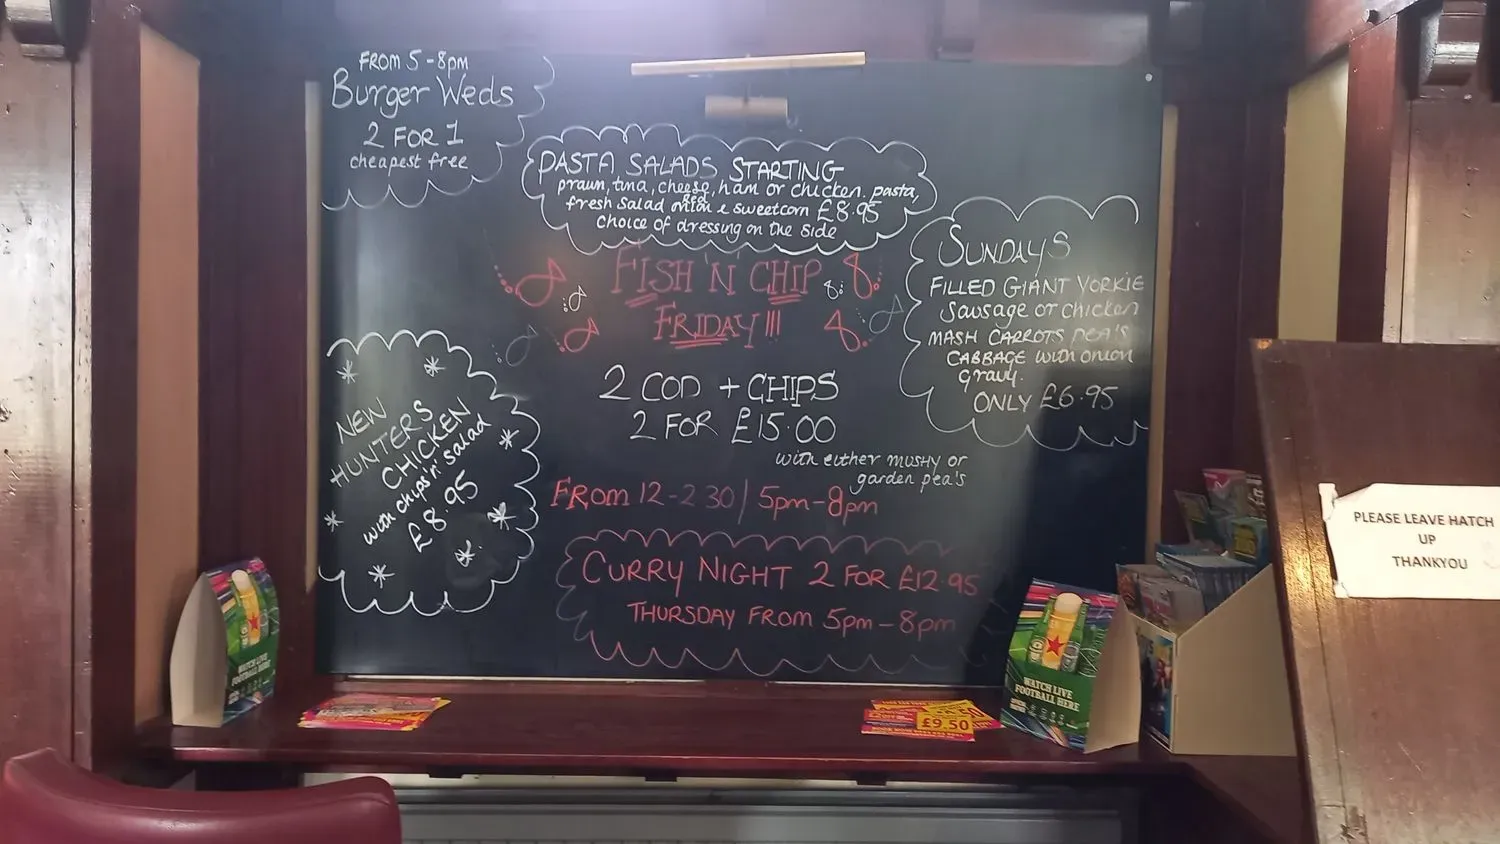 FROM 5-8pm
Burger Weds
2 FOR 1
cheapest free
PASTA SALADS STARTING
prawn, tuna, cheese, ham or chicken. pasta,
fresh salad red onion & sweetcorn £8.95
choice of dressing on the side
FISH 'N' CHIP
FRIDAY!!!
2 COD + CHIPS
2 FOR £15.00
with either mushy or
garden pea's
FROM 12-2 30/5pm-8pm
CURRY NIGHT 2 FOR £12.95
THURSDAY FROM 5pm-8pm
SUNDAYS
FILLED GIANT YORKIE
Sausage or chicken
MASH CARROTS pea's
CABBAGE with onion
gravy.
ONLY £6.95
NEW
HUNTERS
CHICKEN
with chips 'n' salad
£8.95
WATCH LIVE
FOOTBALL HERE
£9.50
WATCH LIVE
FOOTBALL HERE
PLEASE LEAVE HATCH
UP
THANKYOU